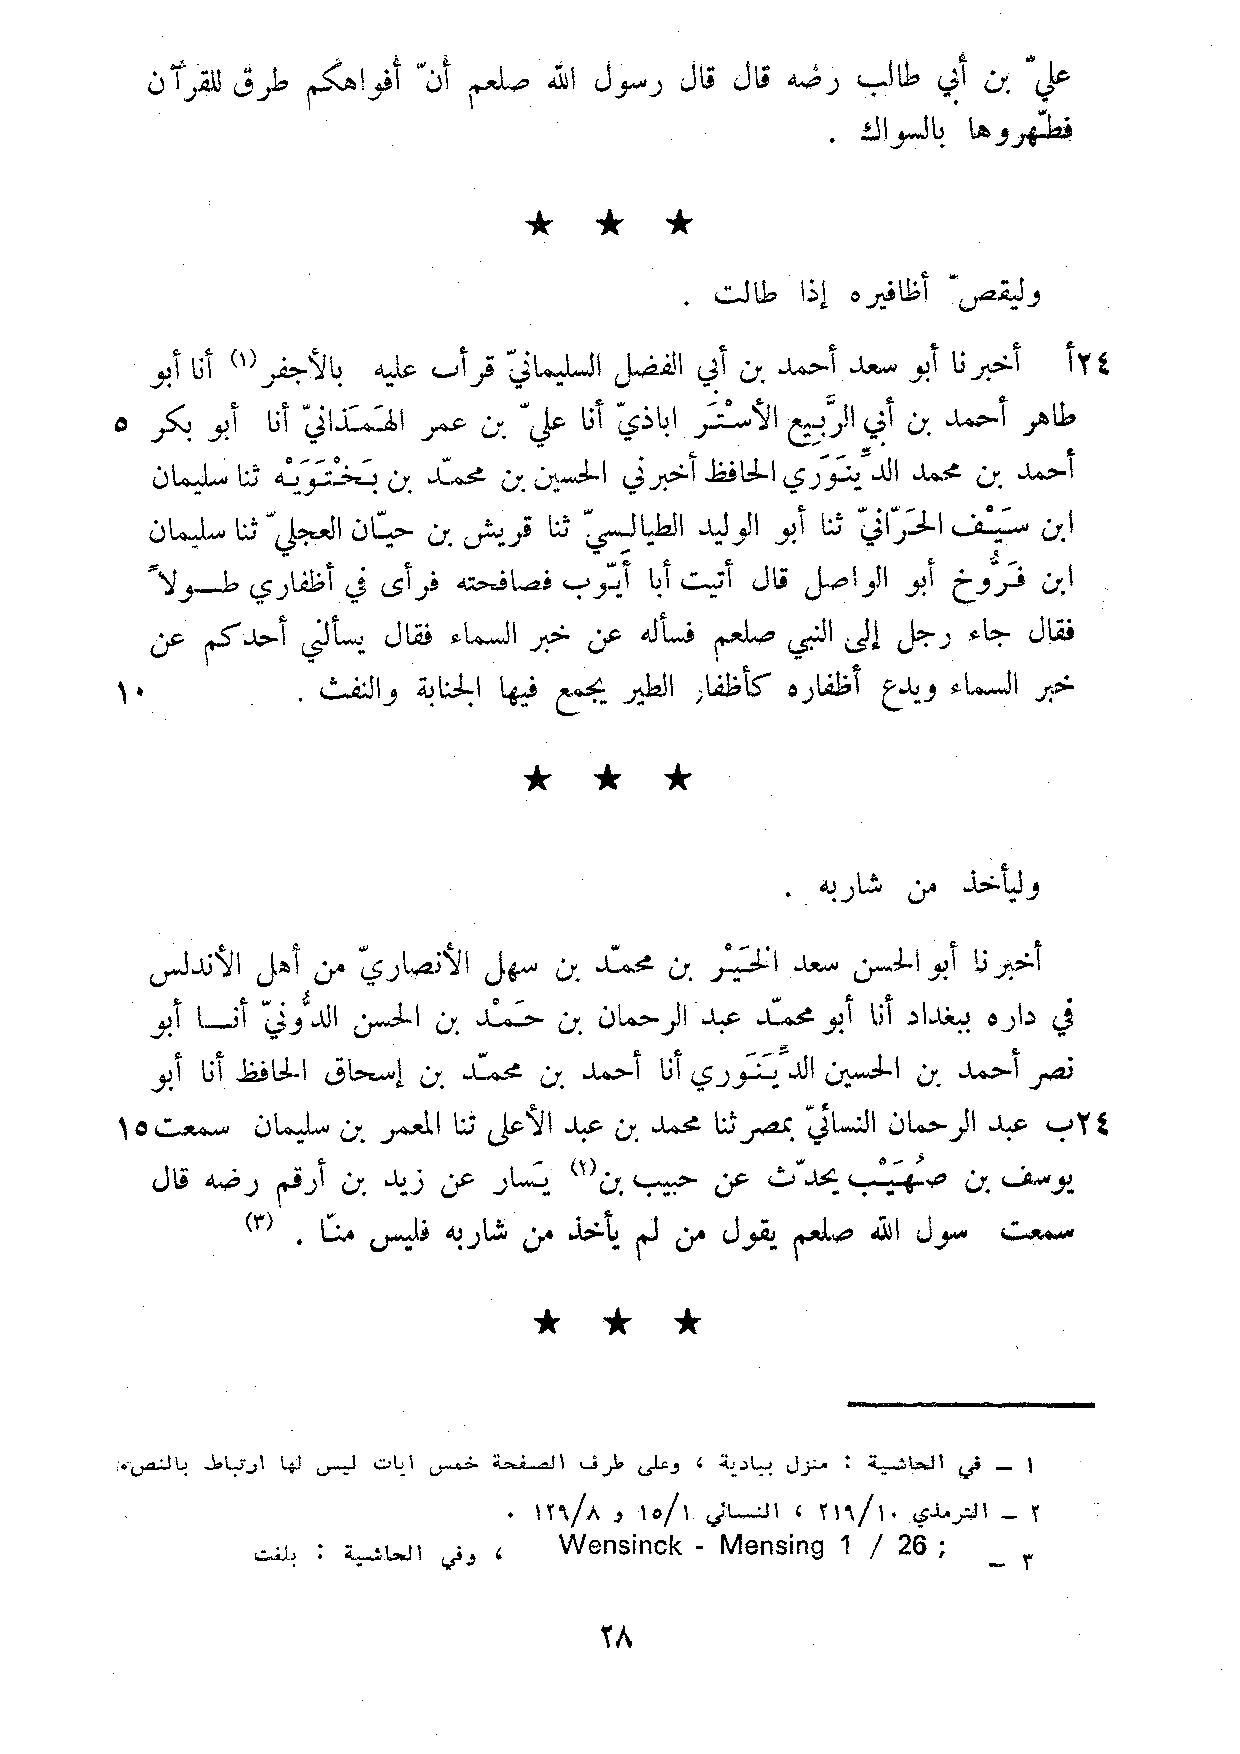 عليّ بن أبي طالب رضه قال قال رسول الله صلعم أنّ أفواهكم طرق للقرآن
فطـّهروها بالسواك .
★ ★ ★
وليقصّ أظافيره إذا طالت .
٢٤أ أخبرنا أبو سعد أحمد بن أبي الفضل السليمانيّ قرأت عليه بالأجفر (١) أنا أبو
طاهر أحمد بن أبي الرَّبيع الأسْتَر اباذيّ أنا عليّ بن عمر الهَمَذانيّ أنا أبو بكر ٥
أحمد بن محمد الدِّينَوَري الحافظ أخبرني الحسين بن محمّد بن بَخْتَوَيْه ثنا سليمان
ابن سَيْف الحَرّانيّ ثنا أبو الوليد الطيالِسيّ ثنا قريش بن حيّان العجليّ ثنا سليمان
ابن فَرُّوخ أبو الواصل قال أتيت أبا أيّوب فصافحته فرأى في أظفاري طــولاً
فقال جاء رجل إلى النبي صلعم فسأله عن خبر السماء فقال يسألني أحدكم عن
خبر السماء ويدع أظفاره كأظفار الطير يجمع فيها الجنابة والنفث . ١٠
★ ★ ★
وليأخذ من شاربه .
أخبرنا أبو الحسن سعد الخَيْر بن محمّد بن سهل الأنصاريّ من أهل الأندلس
في داره ببغداد أنا أبو محمّد عبد الرحمان بن حَمْد بن الحسن الدُّونيّ أنــا أبو
نصر أحمد بن الحسين الدِّيَنَوري أنا أحمد بن محمّد بن إسحاق الحافظ أنا أبو
٢٤ب عبد الرحمان النسائيّ بمصر ثنا محمد بن عبد الأعلى ثنا المعمر بن سليمان سمعت ١٥
يوسف بن صُهَيْب يحدّث عن حبيب بن (٢) يَسار عن زيد بن أرقم رضه قال
سمعت سول الله صلعم يقول من لم يأخذ من شاربه فليس منّا . (٣)
★ ★ ★
١ – في الحاشية : منزل ببادية ، وعلى طرف الصفحة خمس ابات ليس لها ارتباط بالنص.
٢ – الترمذي ٢١٩/١٠ ، النسائي ١٥/١ و ١٢٩/٨ .
٣ – Wensinck - Mensing 1 / 26 ; ، وفي الحاشية : بلغت
٢٨